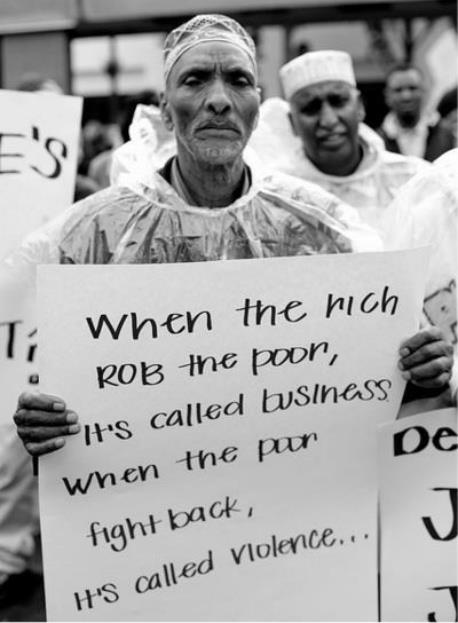 E'S
When the rich
ROB the poor,
It's called business
When the poor
fight back,
It's called violence...
De
J
J